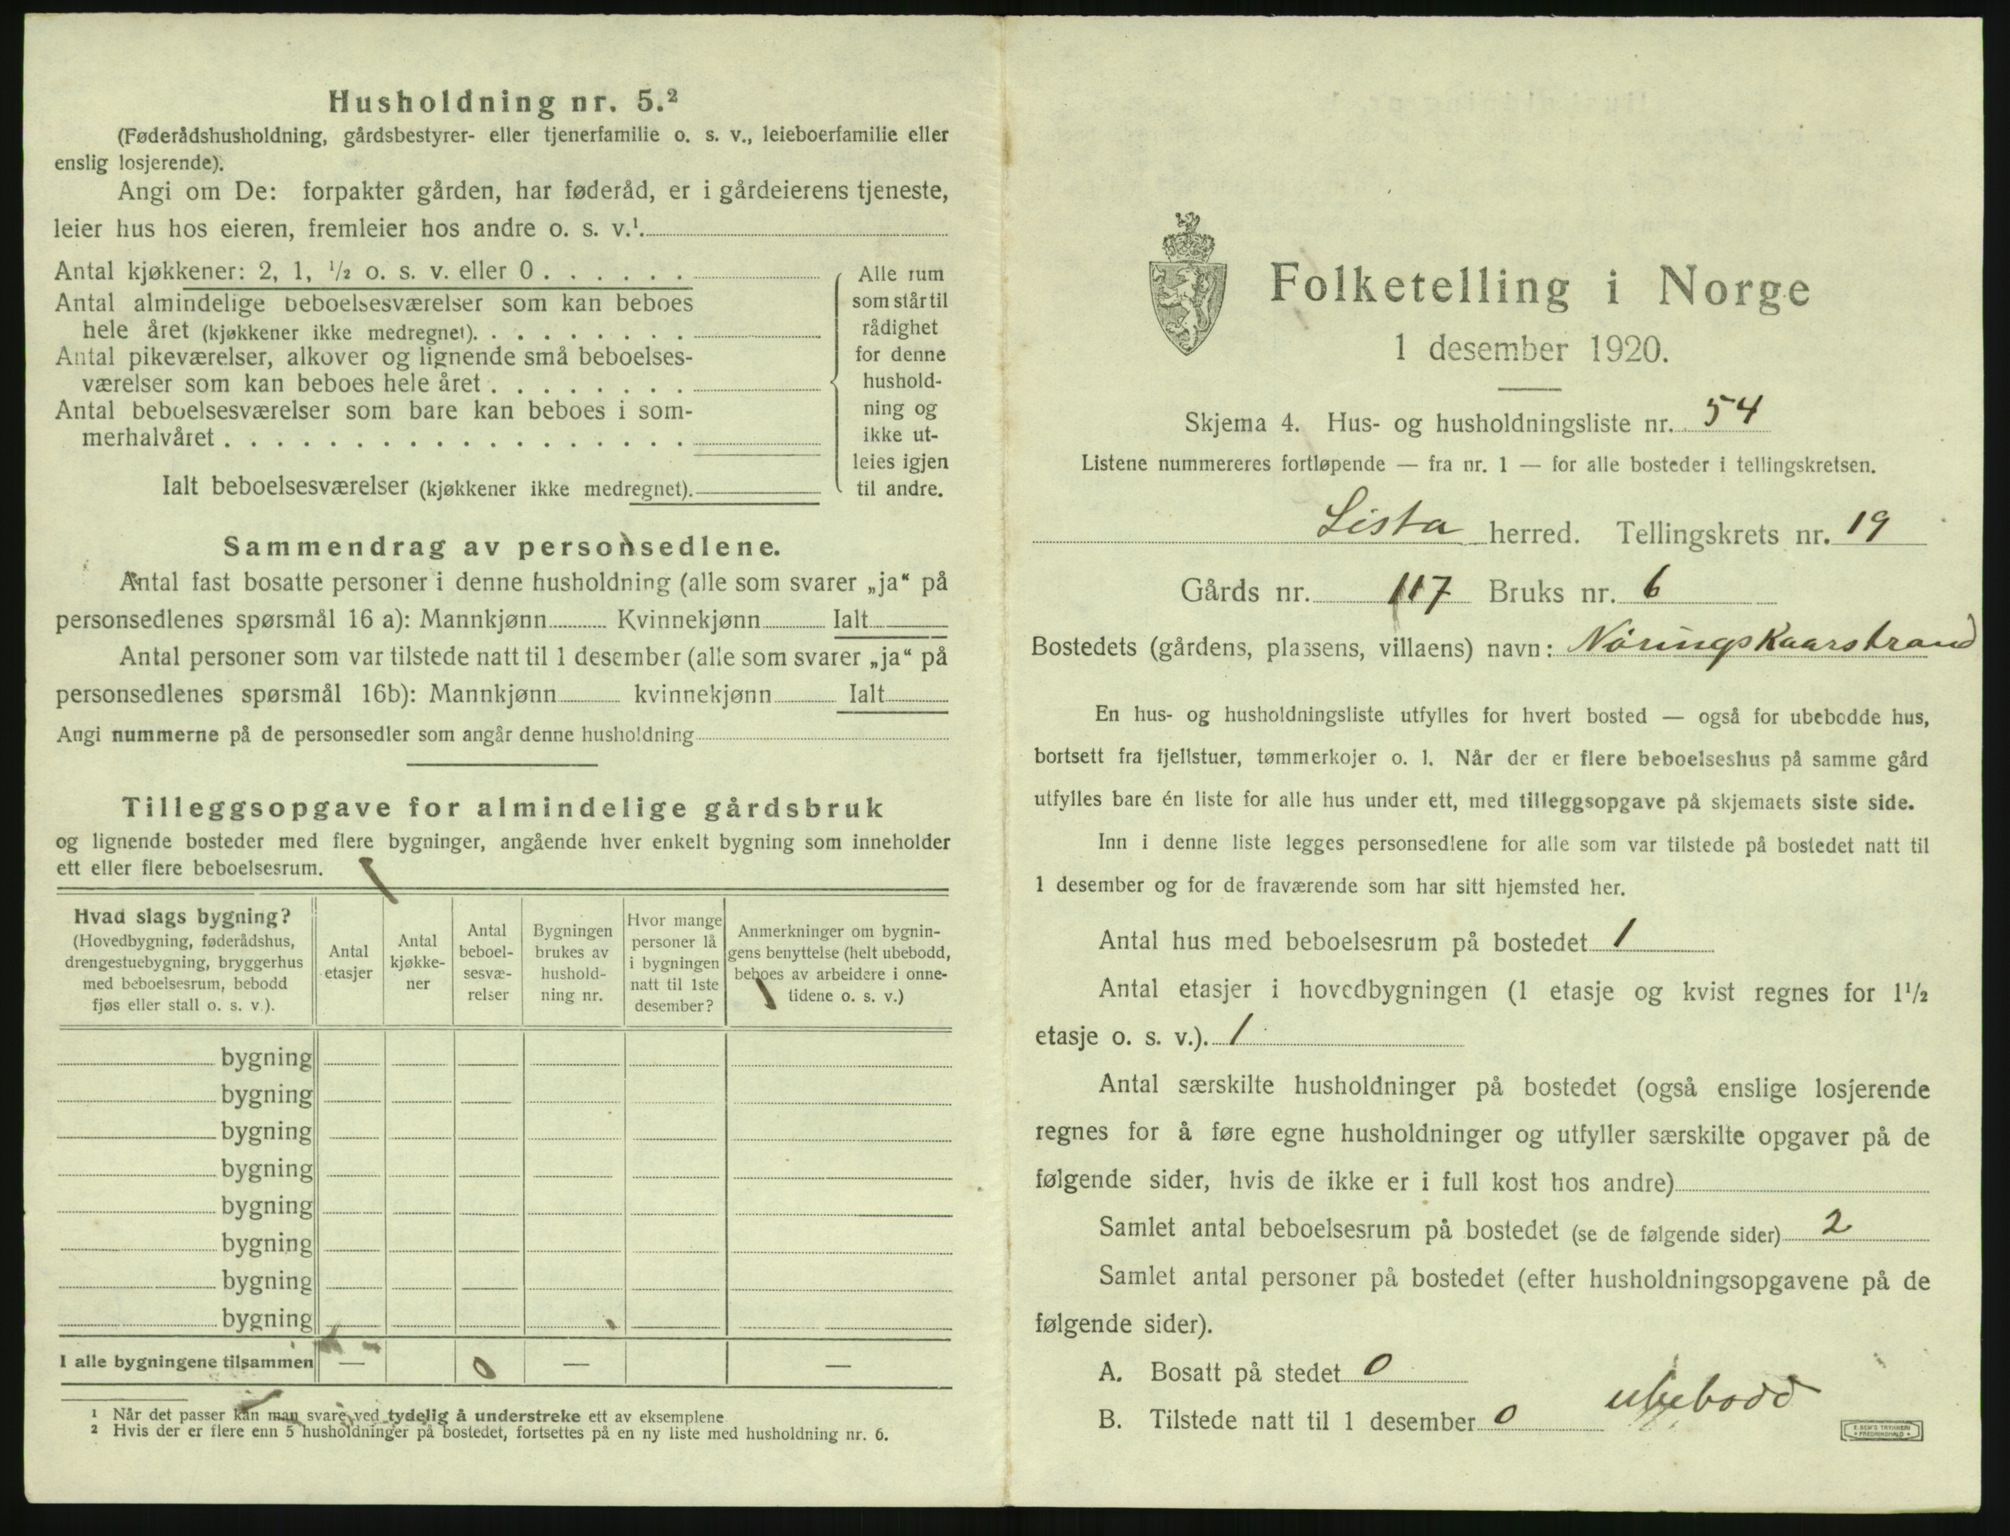 Husholdning nr. 5.²
(Føderådshusholdning, gårdsbestyrer- eller tjenerfamilie o. s. v., leieboerfamilie eller
enslig losjerende).
Angi om De: forpakter gården, har føderåd, er i gårdeierens tjeneste,
leier hus hos eieren, fremleier hos andre o. s. v.¹
Antal kjøkkener: 2, 1, ½ o. s. v. eller 0
Antal almindelige beboelsesværelser som kan beboes
hele året (kjøkkener ikke medregnet)
Antal pikeværelser, alkover og lignende små beboelses-
værelser som kan beboes hele året
Antal beboelsesværelser som bare kan beboes i som-
merhalvåret
Ialt beboelsesværelser (kjøkkener ikke medregnet)
Alle rum
som står til
rådighet
for denne
hushold-
ning og
ikke ut-
leies igjen
til andre.
Sammendrag av personsedlene.
Antal fast bosatte personer i denne husholdning (alle som svarer „ja“ på
personsedlenes spørsmål 16 a): Mannkjønn Kvinnekjønn Ialt
Antal personer som var tilstede natt til 1 desember (alle som svarer „ja“ på
personsedlenes spørsmål 16b): Mannkjønn kvinnekjønn Ialt
Angi nummerne på de personsedler som angår denne husholdning
Tilleggsopgave for almindelige gårdsbruk
og lignende bosteder med flere bygninger, angående hver enkelt bygning som inneholder
ett eller flere beboelsesrum.
Hvad slags bygning?
(Hovedbygning, føderådshus,
drengestuebygning, bryggerhus
med beboelsesrum, bebodd
fjøs eller stall o. s. v.).
Antal
etasjer
Antal
kjøkke-
ner
Antal
beboel-
sesvæ-
relser
Bygningen
brukes av
hushold-
ning nr.
Hvor mange
personer lå
i bygningen
natt til 1ste
desember?
Anmerkninger om bygnin-
gens benyttelse (helt ubebodd,
beboes av arbeidere i onne-
tidene o. s. v.)
bygning
bygning
bygning
bygning
bygning
bygning
bygning
bygning
I alle bygningene tilsammen — 0 — —
¹ Når det passer kan man svare ved tydelig å understreke ett av eksemplene
² Hvis der er flere enn 5 husholdninger på bostedet, fortsettes på en ny liste med husholdning nr. 6.
Folketelling i Norge
1 desember 1920.
Skjema 4. Hus- og husholdningsliste nr. 54
Listene nummereres fortløpende — fra nr. 1 — for alle bosteder i tellingskretsen.
Lista herred. Tellingskrets nr. 19
Gårds nr. 117 Bruks nr. 6
Bostedets (gårdens, plassens, villaens) navn: Nøringskaarstrand
En hus- og husholdningsliste utfylles for hvert bosted — også for ubebodde hus,
bortsett fra fjellstuer, tømmerkojer o. l. Når der er flere beboelseshus på samme gård
utfylles bare én liste for alle hus under ett, med tilleggsopgave på skjemaets siste side.
Inn i denne liste legges personsedlene for alle som var tilstede på bostedet natt til
1 desember og for de fraværende som har sitt hjemsted her.
Antal hus med beboelsesrum på bostedet 1
Antal etasjer i hovedbygningen (1 etasje og kvist regnes for 1½
etasje o. s. v.). 1
Antal særskilte husholdninger på bostedet (også enslige losjerende
regnes for å føre egne husholdninger og utfyller særskilte opgaver på de
følgende sider, hvis de ikke er i full kost hos andre)
Samlet antal beboelsesrum på bostedet (se de følgende sider) 2
Samlet antal personer på bostedet (efter husholdningsopgavene på de
følgende sider).
A. Bosatt på stedet 0
B. Tilstede natt til 1 desember 0
ubebodd